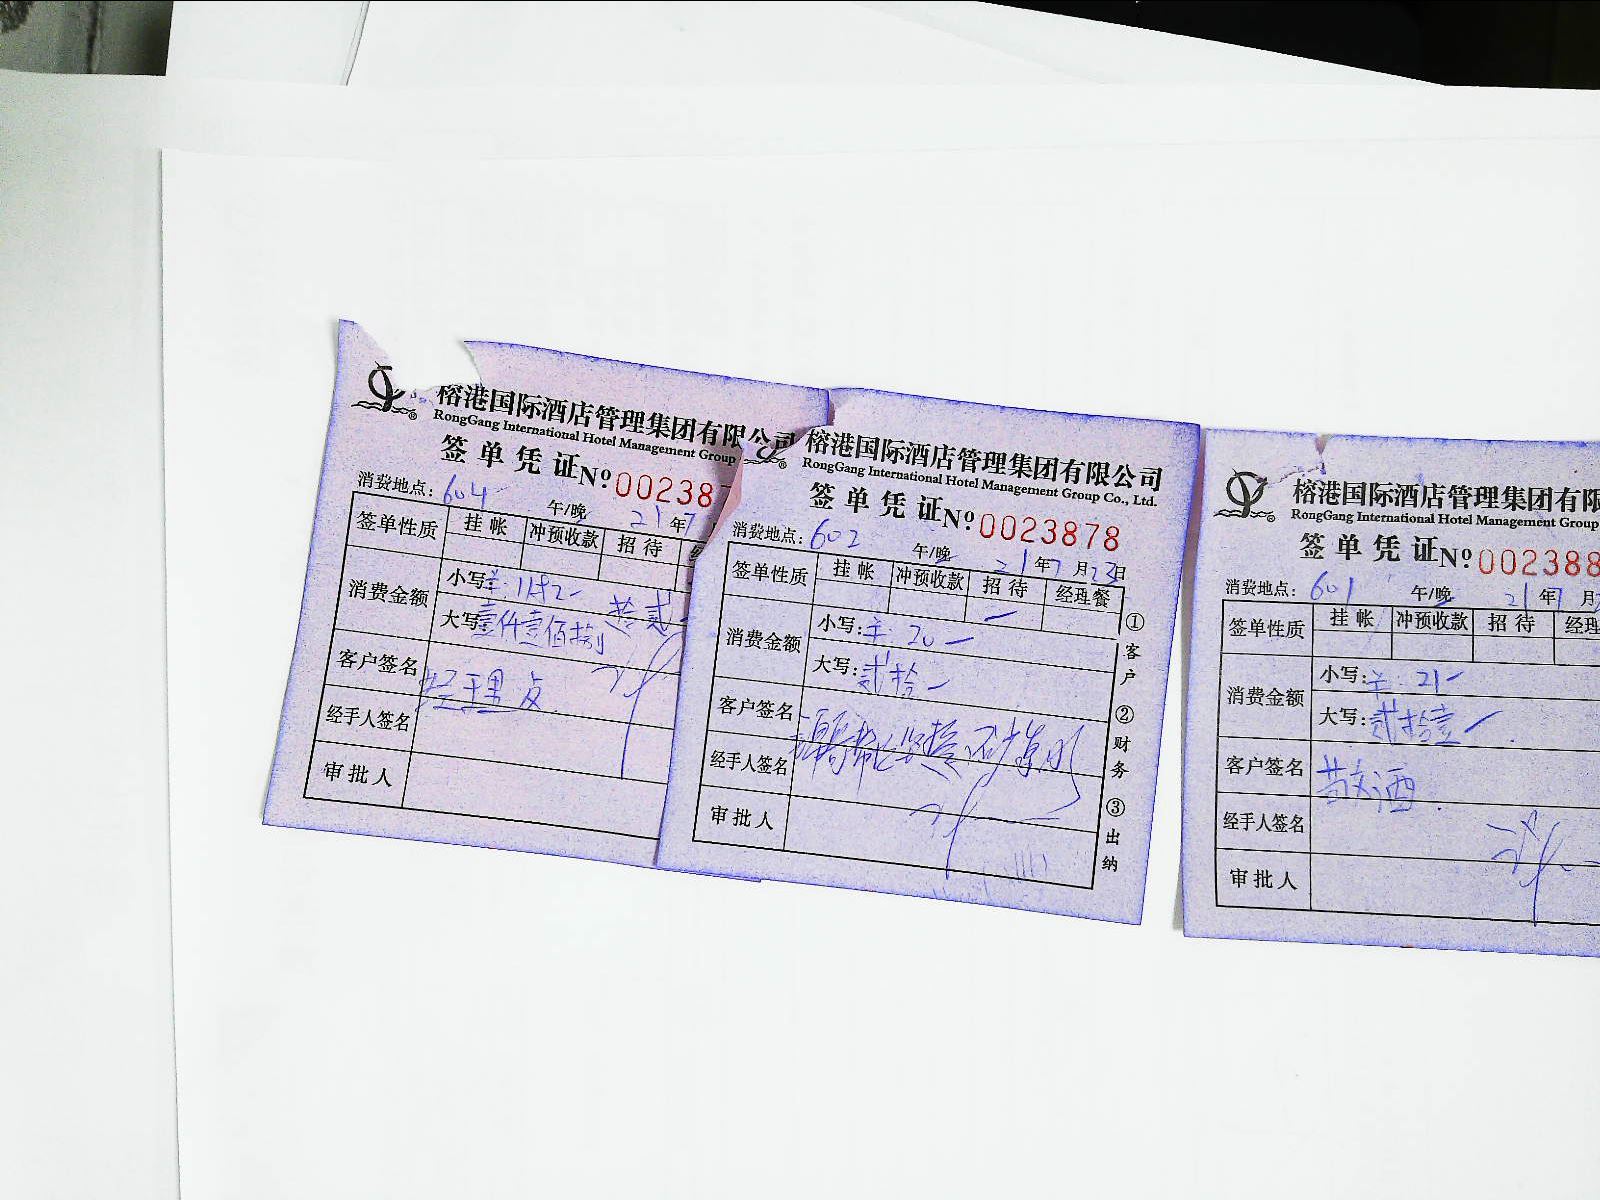 榕港国际酒店管理集团有限公司
RongGang International Hotel Management Group
签单凭证 Nº 00238
消费地点: 604 午/晚 21年7
签单性质 挂帐 冲预收款 招待
消费金额 小写:
大写: 壹仟壹佰捌拾贰
客户签名 经理
经手人签名
审批人
榕港国际酒店管理集团有限公司
RongGang International Hotel Management Group Co., Ltd.
签单凭证 Nº 0023878
消费地点: 602 午/晚 21年7月23日
签单性质 挂帐 冲预收款 招待 经理餐
消费金额 小写: 羊: 20一
大写: 贰拾一
客户签名
经手人签名
审批人
①客户 ②财务 ③出纳
榕港国际酒店管理集团有限
RongGang International Hotel Management Group
签单凭证 Nº 002388
消费地点: 601 午/晚 21年7月
签单性质 挂帐 冲预收款 招待 经理
消费金额 小写: 羊: 21一
大写: 贰拾壹
客户签名
经手人签名
审批人